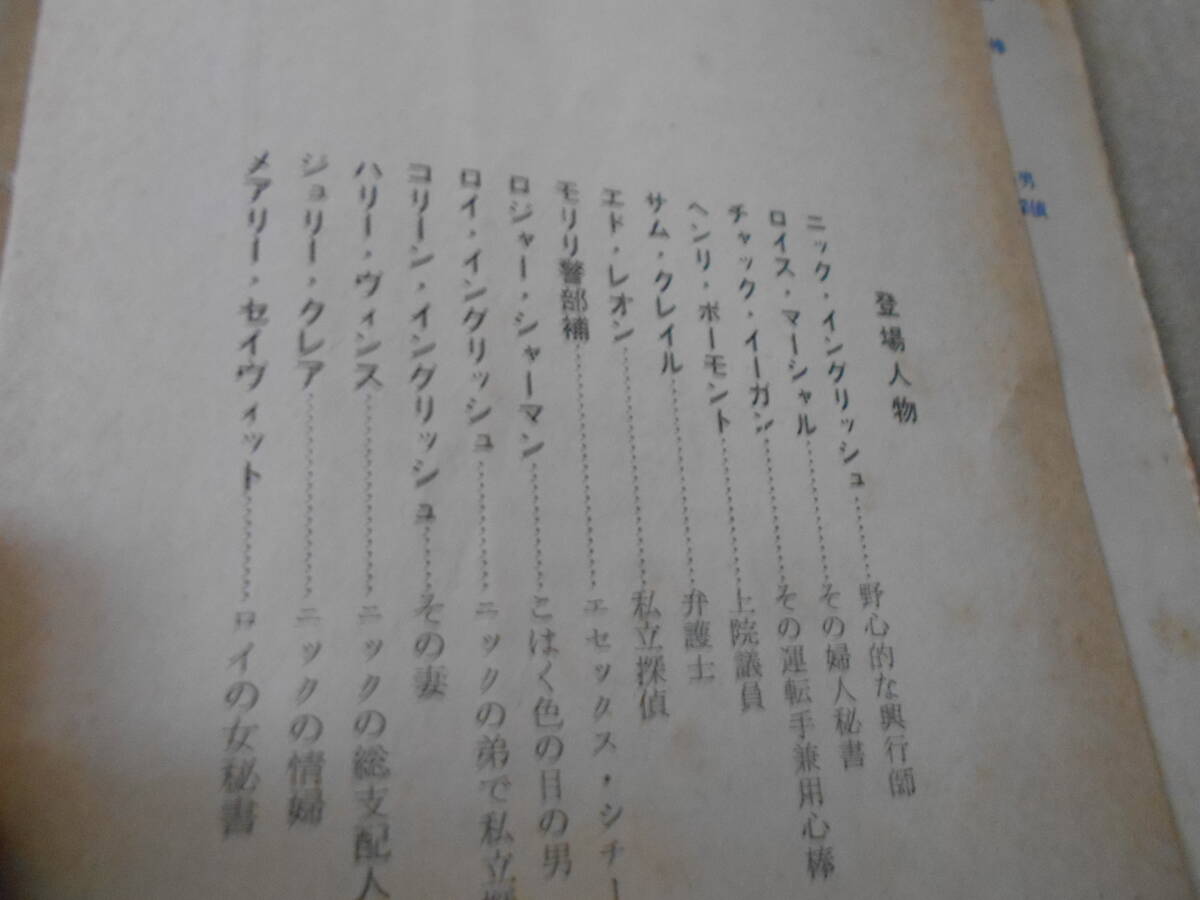 登場人物
ニック・イングリッシュ…………野心的な興行師
ロイス・マーシャル…………その婦人秘書
チャック・イーガン…………その運転手兼用心棒
ヘンリ・ボーモント…………上院議員
サム・クレイル…………弁護士
エド・レオン…………私立探偵
モリリ警部補…………エセックス・シチー
ロジャー・シャーマン…………こはく色の目の男
ロイ・イングリッシュ…………ニックの弟で私立
コリーン・イングリッシュ…………その妻
ハリー・ヴィンス…………ニックの総支配人
ジュリー・クレア…………ニックの情婦
メアリー・セイヴィット…………ロイの女秘書
男
偵